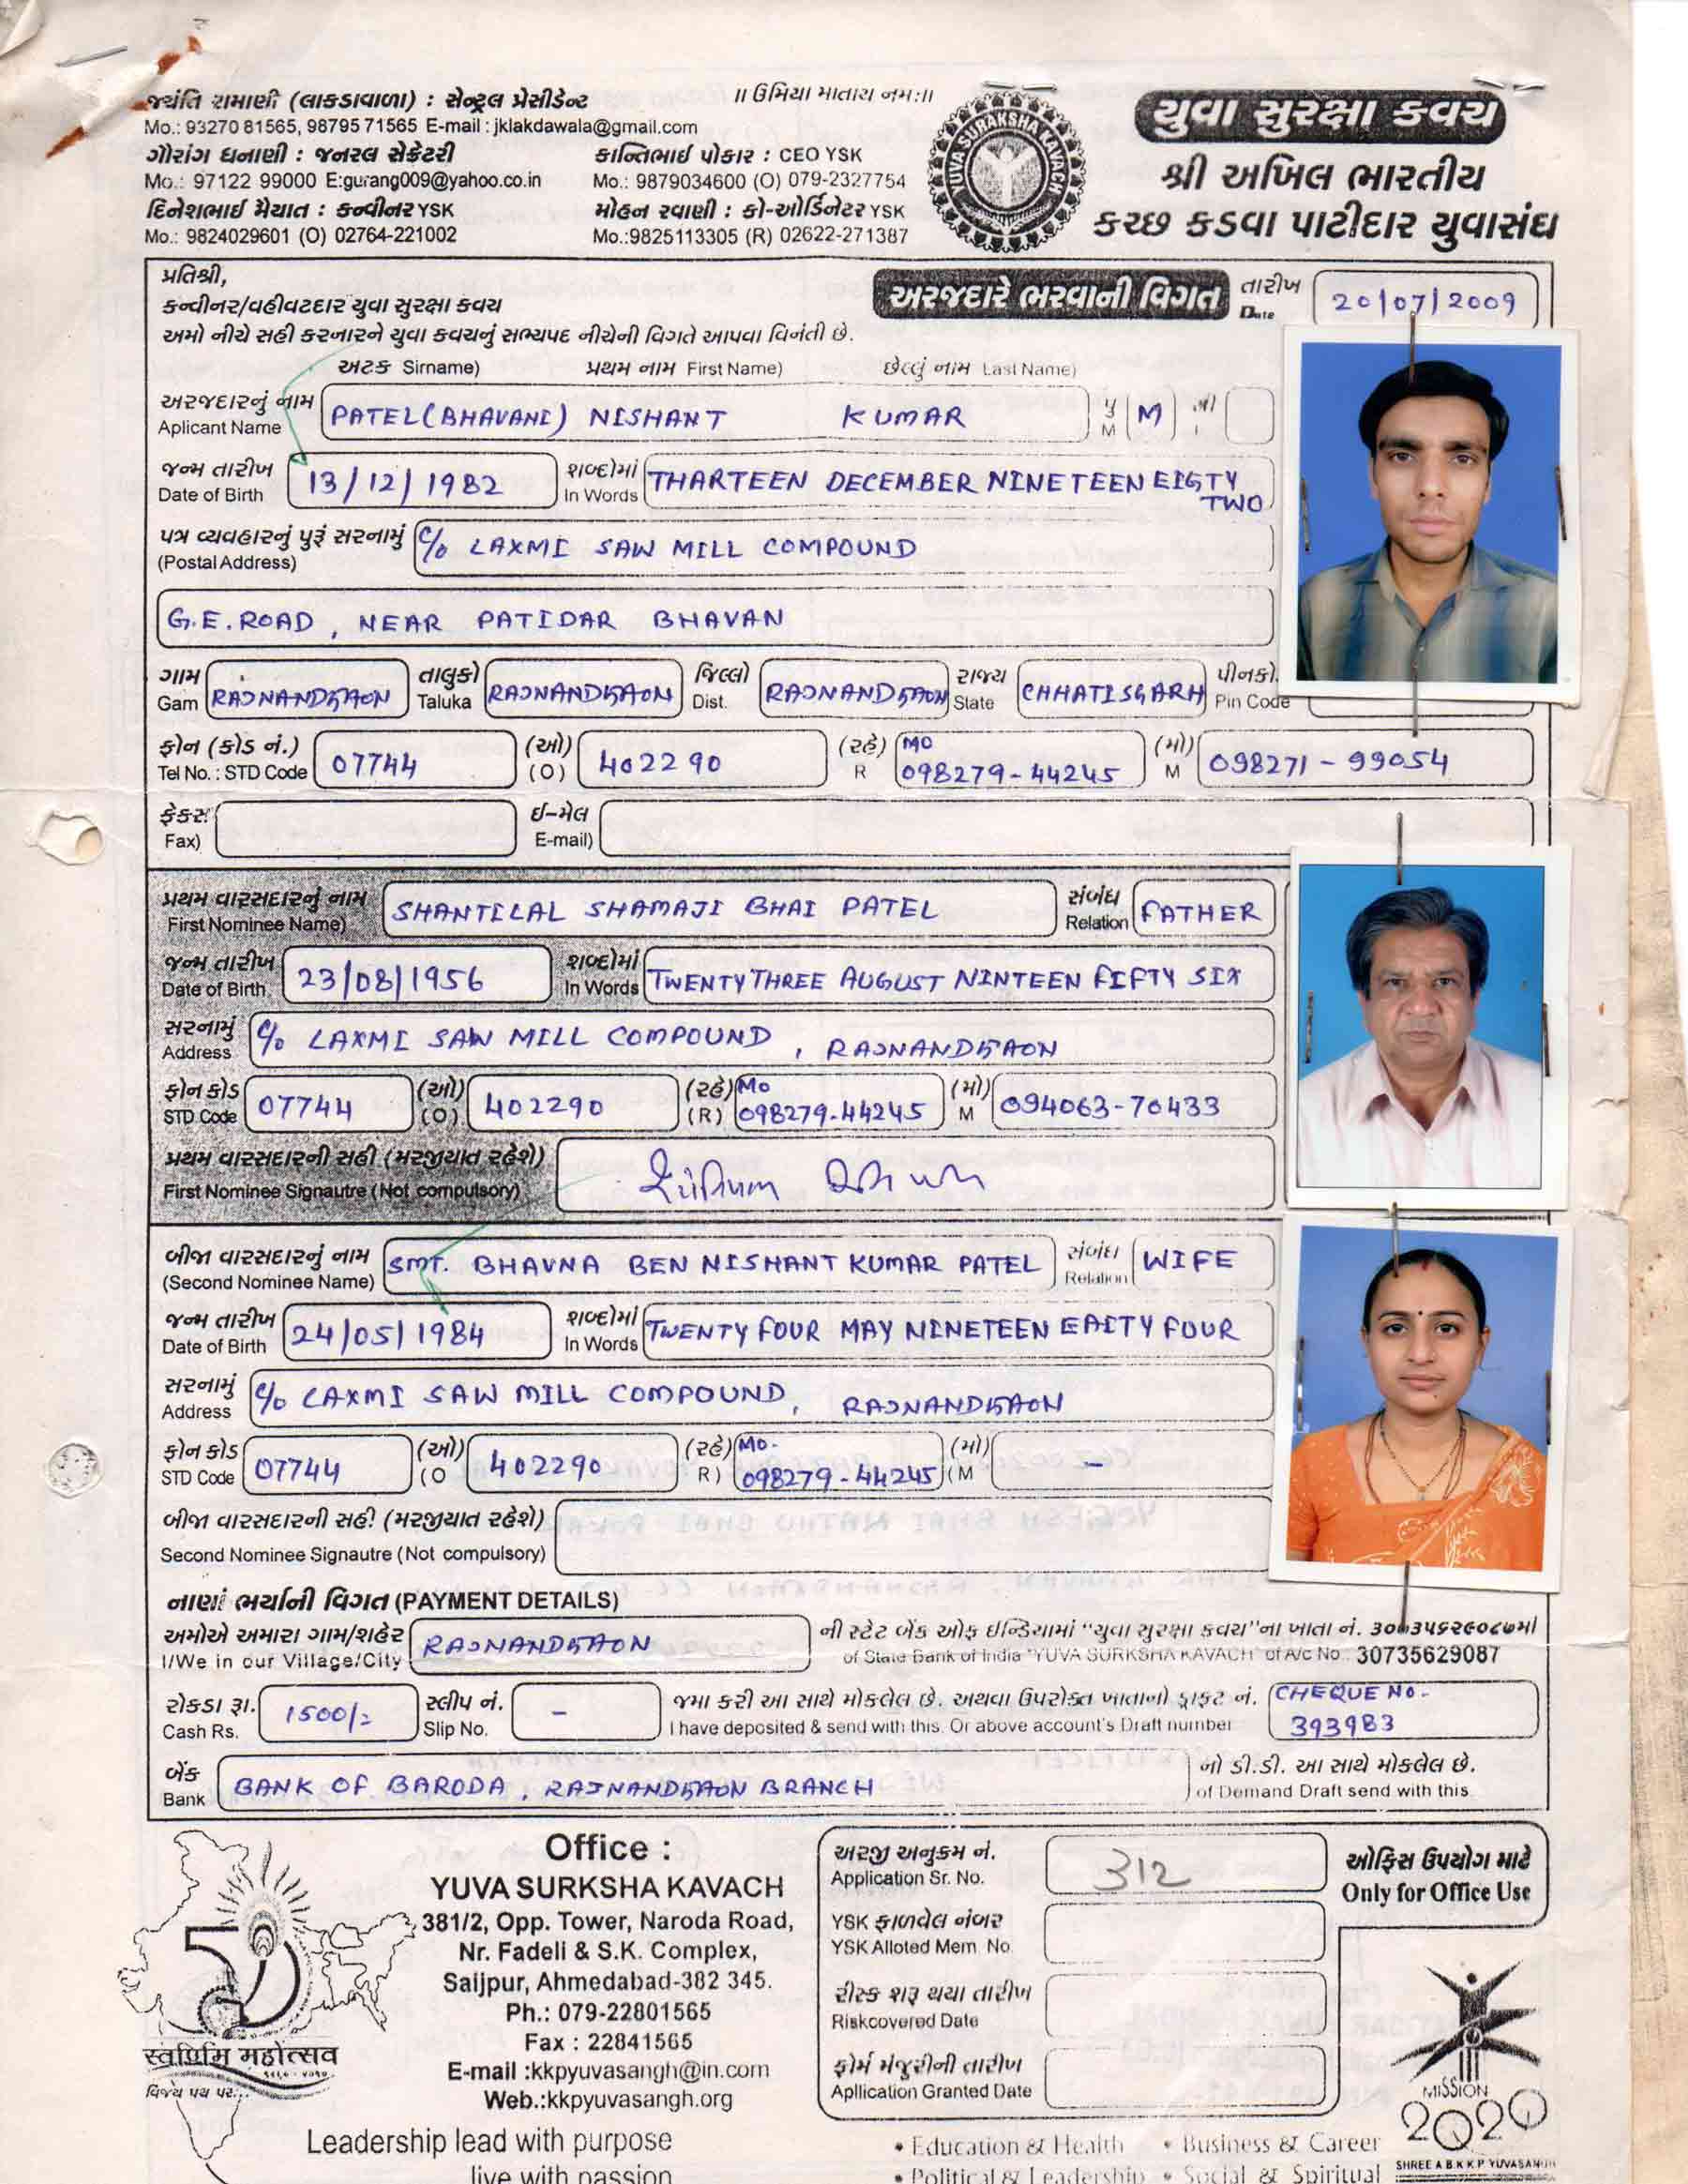 ॥ ઉમિયા માતાય નમઃ॥
જયંતિ રામાણી (લાકડાવાળા) : સેન્ટ્રલ પ્રેસીડેન્ટ
Mo.: 93270 81565, 98795 71565 E-mail : jklakdawala@gmail.com
ગૌરાંગ ધનાણી : જનરલ સેક્રેટરી
Mo.: 97122 99000 E:gurang009@yahoo.co.in
દિનેશભાઈ મૈયાત : કન્વીનર YSK
Mo.: 9824029601 (O) 02764-221002
કાન્તિભાઈ પોકાર : CEO YSK
Mo.: 9879034600 (O) 079-2327754
મોહન રવાણી : કો-ઓર્ડિનેટર YSK
Mo.:9825113305 (R) 02622-271387
YUVA SURAKSHA KAVACH
યુવા સુરક્ષા કવચ
શ્રી અખિલ ભારતીય
કચ્છ કડવા પાટીદાર યુવાસંઘ
પ્રતિશ્રી,
કન્વીનર/વહીવટદાર યુવા સુરક્ષા કવચ
અમો નીચે સહી કરનારને યુવા કવચનું સભ્યપદ નીચેની વિગતે આપવા વિનંતી છે.
અરજદારે ભરવાની વિગત
તારીખ Date 20/07/2009
અટક Sirname) પ્રથમ નામ First Name) છેલ્લું નામ Last Name)
અરજદારનું નામ
Aplicant Name PATEL(BHAVANI) NISHANT KUMAR પુ M M સ્ત્રી
જન્મ તારીખ
Date of Birth 13/12/1982 શબ્દોમાં In Words THARTEEN DECEMBER NINETEEN EIGTY TWO
પત્ર વ્યવહારનું પુરૂં સરનામું
(Postal Address) C/o LAXMI SAW MILL COMPOUND
G.E. ROAD, NEAR PATIDAR BHAVAN
ગામ Gam RAJNANDGAON તાલુકો Taluka RAJNANDGAON જિલ્લો Dist. RAJNANDGAON રાજ્ય State CHHATISGARH પીનકો Pin Code
ફોન (કોડ નં.)
Tel No. : STD Code 07744 (ઓ) (O) 402290 (રહે) R MO 098279-44245 (મો) M 098271-99054
ફેક્સ
Fax)
ઈ-મેલ
E-mail)
પ્રથમ વારસદારનું નામ
First Nominee Name) SHANTILAL SHAMAJI BHAI PATEL સંબંધ Relation FATHER
જન્મ તારીખ
Date of Birth 23/08/1956 શબ્દોમાં In Words TWENTY THREE AUGUST NINTEEN FIFTY SIX
સરનામું
Address C/o LAXMI SAW MILL COMPOUND, RAJNANDGAON
ફોન કોડ
STD Code 07744 (ઓ) (O) 402290 (રહે) (R) Mo 098279-44245 (મો) M 094063-70433
પ્રથમ વારસદારની સહી (મરજીયાત રહેશે)
First Nominee Signautre (Not compulsory)
બીજા વારસદારનું નામ
(Second Nominee Name) SMT. BHAVNA BEN NISHANT KUMAR PATEL સંબંધ Relation WIFE
જન્મ તારીખ
Date of Birth 24/05/1984 શબ્દોમાં In Words TWENTY FOUR MAY NINETEEN EAITY FOUR
સરનામું
Address C/o LAXMI SAW MILL COMPOUND, RAJNANDGAON
ફોન કોડ
STD Code 07744 (ઓ) (O 402290 (રહે) R) MO. 098279-44245 (મો) (M -
બીજા વારસદારની સહી (મરજીયાત રહેશે)
Second Nominee Signautre (Not compulsory)
નાણાં ભર્યાની વિગત (PAYMENT DETAILS)
અમોએ અમારા ગામ/શહેર RAJNANDGAON ની સ્ટેટ બેંક ઓફ ઇન્ડિયામાં "યુવા સુરક્ષા કવચ"ના ખાતા નં. ૩૦૭૩૫૬૨૯૦૮૭માં
I/We in our Village/City of State Bank of India "YUVA SURKSHA KAVACH" of A/c No : 30735629087
રોકડા રૂા. 1500/= સ્લીપ નં. - જમા કરી આ સાથે મોકલેલ છે. અથવા ઉપરોક્ત ખાતાનો ડ્રાફ્ટ નં. CHEQUE NO -
Cash Rs. Slip No. I have deposited & send with this. Or above account's Draft number 393983
બેંક
Bank BANK OF BARODA, RAJNANDGAON BRANCH
નો ડી.ડી. આ સાથે મોકલેલ છે.
of Demand Draft send with this
50
स्वर्णिम महोत्सव
Office :
YUVA SURKSHA KAVACH
381/2, Opp. Tower, Naroda Road,
Nr. Fadeli & S.K. Complex,
Saijpur, Ahmedabad-382 345.
Ph.: 079-22801565
Fax : 22841565
E-mail :kkpyuvasangh@in.com
Web.:kkpyuvasangh.org
Leadership lead with purpose
live with passion
અરજી અનુક્રમ નં.
Application Sr. No. 312
YSK ફાળવેલ નંબર
YSK Alloted Mem. No
રીસ્ક શરૂ થયા તારીખ
Riskcovered Date
ફોર્મ મંજુરીની તારીખ
Apllication Granted Date
ઓફિસ ઉપયોગ માટે
Only for Office Use
MISSION
2020
SHREE A B K K P YUVASANGH
• Education & Health • Business & Career
• Political & Leadership • Social & Spiritual